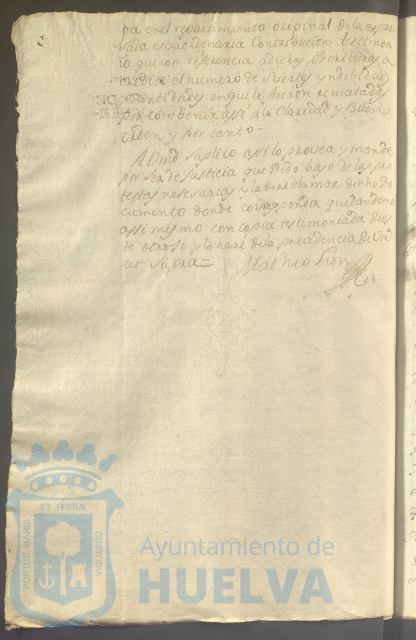 pa en el repartimiento original de la espre
sada estraordinaria Contribucion testimo
nio que con referencia a dichas Escrituras a
credite el numero de Suertes y
cantidades en que le fueron rematadas
por combenir asi á la Claridad y Buen
orden, y por tanto
A Vmd Suplico asi lo provea y mande
por ser de Justicia que Pido bajo de las pro
testas nesesarias y la de reclamar dicho Do
cumento donde corresponda quedandome
assi mismo con copia testimoniada de es
te otrosi y tohare de la providencia de Vm
ut Supra=
ET TERRÆ
PORTUS MARIS
CUSTODIA
Ayuntamiento de
HUELVA